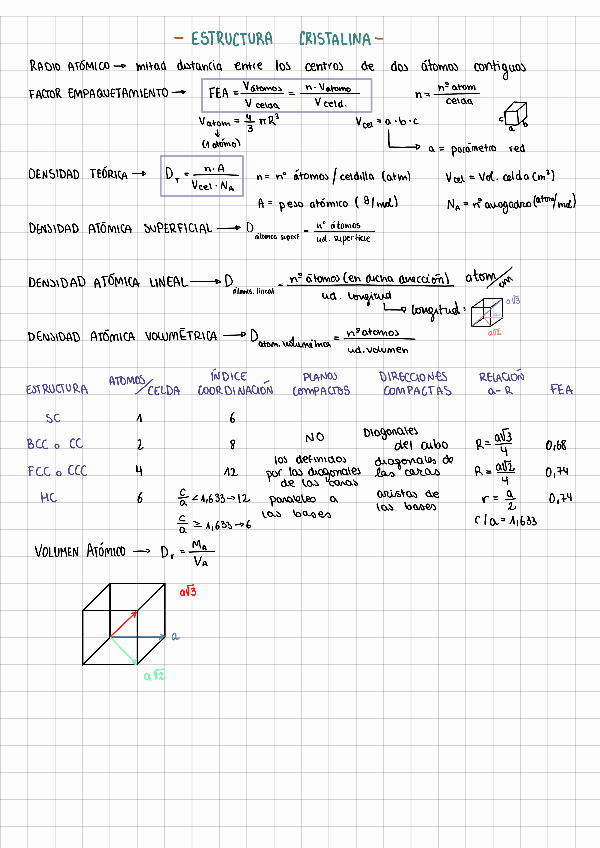 - ESTRUCTURA CRISTALINA -
RADIO ATÓMICO → mitad distancia entre los centros de dos átomos contiguos
FACTOR EMPAQUETAMIENTO → FEA = V átomos / V celda = n · Vatomo / V celd. n = nº atom / celda
V atom = 4/3 π R³ V cel = a · b · c c a b
↓
(1 átomo) → a = parámetro red
DENSIDAD TEÓRICA → D T = n · A / V cel · N A n = nº átomos / celdilla (atm) V cel = Vol. celda (m³)
A = peso atómico (g/mol) N A = nº avogadro (atom/mol)
DENSIDAD ATÓMICA SUPERFICIAL → D atómica superf = nº átomos / ud. superficie
DENSIDAD ATÓMICA LINEAL → D atómic. lineal = nº átomos (en dicha dirección) / ud. longitud atom/cm
→ longitud: a√3
a√2
DENSIDAD ATÓMICA VOLUMÉTRICA → D atom. volumétrica = nº atomos / ud. volumen
ESTRUCTURA ATOMOS/CELDA ÍNDICE COORDINACIÓN PLANOS COMPACTOS DIRECCIONES COMPACTAS RELACIÓN a-R FEA
SC 1 6
BCC o CC 2 8 NO Diagonales del cubo R = a√3/4 0,68
FCC o CCC 4 12 los definidos por las diagonales de las caras diagonales de las caras R = a√2/4 0,74
HC 6 c/a < 1,633 → 12 paralelos a las bases aristas de las bases r = a/2 0,74
c/a ≥ 1,633 → 6 c/a = 1,633
VOLUMEN ATÓMICO → D r = M A / V A
a√3
a
a√2